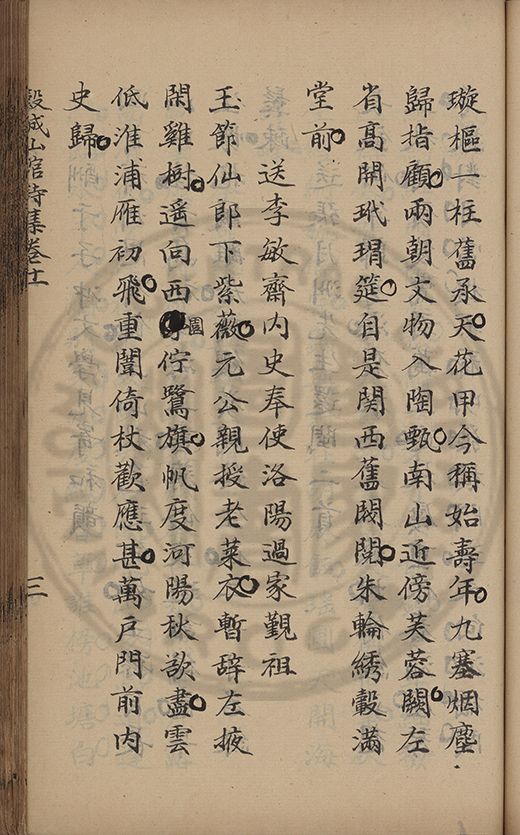 璇樞一柱舊承天花甲今稱始壽年九塞烟塵
歸指顧兩朝文物入陶甄南山近傍芙蓉闕左
省高開玳瑁筵自是関西舊閥閱朱輪綉轂滿
堂前
送李敏齋内史奉使洛陽過家覲祖
玉節仙郎下紫薇元公親授老萊衣暫辞左掖
閑雞樹遥向西園佇鷺旗帆度河陽秋欲盡雲
低淮浦雁初飛重闈倚杖歡應甚萬戶門前内
史歸
穀城山館詩集卷十一 三